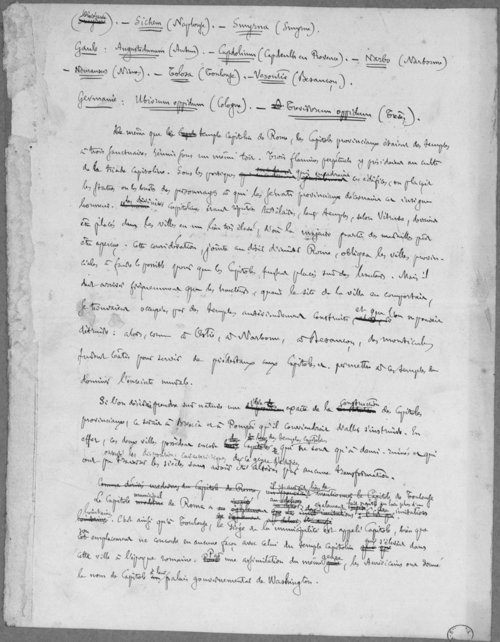 . – Sichem (Naplouse). – Smyrna (Smyrne).
Gaule : Augustodunum (Autun). – Capitolium (Capdeuilh en Provence). – Narbo (Narbonne)
– Nemausus (Nîmes). – Tolosa (Toulouse). – Vesontio (Besançon).
Germanie : Ubiorum oppidum (Cologne). – Treverorum oppidum (Trèves).
De même que le temple Capitolin de Rome, les Capitoles provinciaux étaient des temples
à trois sanctuaires, réunis sous un même toit. Trois flamines perpétuels y présidaient au culte
de la triade Capitoline. Sous les portiques qui ces édifices, on plaçait
les statues ou les bustes des personnages à qui les sénats provinciaux décernaient cet insigne
honneur. Les divinités Capitolines étant réputées tutélaires, leurs temples, selon Vitruve, devaient
être placés dans les villes en un lieu très élevé, d'où la majeure partie des murailles pût
être aperçue. Cette considération, jointe au désir d'imiter Rome, obligea les villes provin-
ciales à faire le possible pour que les Capitoles fussent placés sur des hauteurs. Mais il
dut arriver fréquemment que les hauteurs, quand le site de la ville en comportait,
se trouvaient occupées par des temples antérieurement construits et que l'on ne pouvait
détruire : alors, comme à Ostie, à Narbonne, à Besançon, des monticules
furent créés pour servir de piédestaux aux Capitoles et permettre à ces temples de
dominer l'enceinte murale.
Si l'on désirait prendre sur nature une idée exacte de la construction de Capitoles
provinciaux, ce serait à Brescia et à Pompéi qu'il conviendrait d'aller s'instruire. En
effet, ces deux villes possèdent encore des temples Capitolins qui ne sont qu'à demi ruinés et qui
ont pu traverser les siècles sans avoir été altérés par aucune transformation.
Le Capitole municipal de Rome a
. C'est ainsi qu'à Toulouse, le siège de la municipalité est appelé Capitole, bien que
cet emplacement ne concorde en aucune façon avec celui du temple Capitolin qui s'élevait dans
cette ville à l'époque romaine. une assimilation du même genre, les Américains ont donné
le nom de Capitole au palais gouvernemental de Washington.